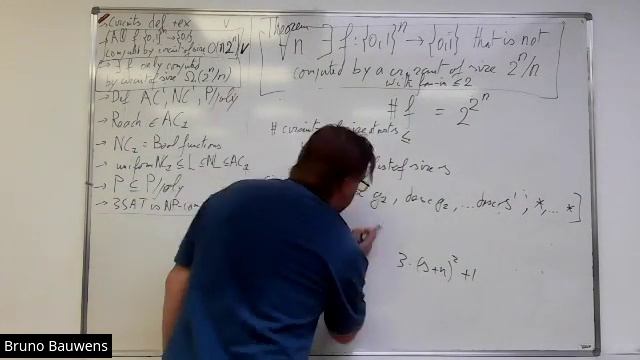 → circuits def + ex V
→ All f {0,1}^n → {0,1} computed by circuit of size O(n2^n) V
→ ∃ f only computed by circuit of size Ω(2^n/n)
→ Def AC, NC, P/poly
→ Reach ∈ AC_1
→ NC_1 = Bool functions
→ uniform NC_1 ⊆ L ⊆ NL ⊆ AC_1
→ P ⊆ P/poly
→ 3SAT is NP-com
Theorem
∀n ∃ f: {0,1}^n → {0,1} that is not
computed by a circuit of size 2^n/n
with fan-in ≤ 2
# f = 2^{2^n}
# circuits of size s
≤
list of size s
g_2, desc g_2, ... desc s', *, ... *]
3·(s+n)^2 + 1
Bruno Bauwens